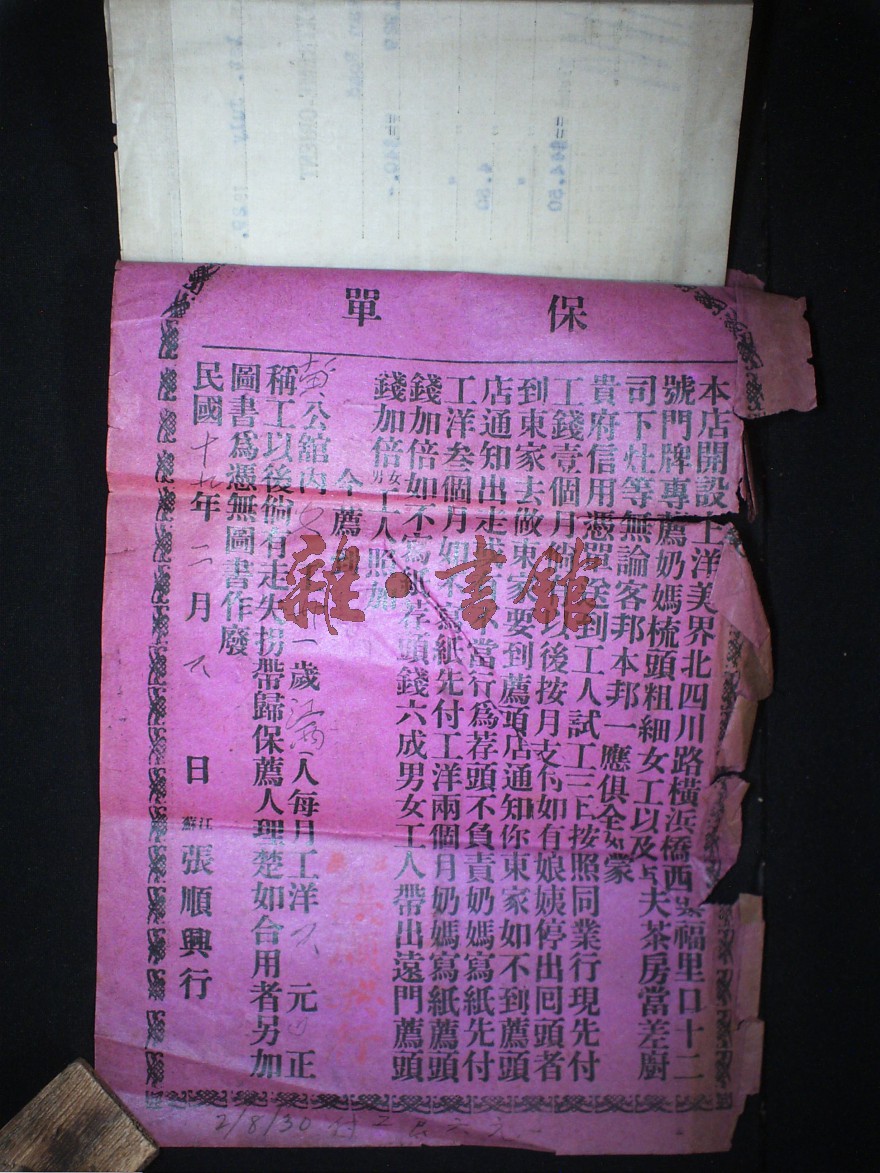 保單
本店開設上洋美界北四川路橫浜橋西 福里口十二
號門牌專薦奶媽梳頭粗細女工以及 夫茶房當差廚
司下灶等無論客邦本邦一應俱全如蒙
貴府信用憑單送到工人試工三日按照同業行現先付
工錢壹個月 以後按月支付如有娘姨停出回頭者
到東家去做東家要到薦頭店通知你東家如不到薦頭
店通知出走 不當行爲荐頭不負責奶媽寫紙先付
工洋叁個月如不寫紙先付工洋兩個月奶媽寫紙薦頭
錢加倍如不寫紙荐頭錢六成男女工人帶出遠門薦頭
錢加倍男女工人照加
今薦到
公館內 一歲江西人每月工洋 元 正
稱工以後倘有走失拐帶歸保薦人理楚如合用者另加
圖書爲憑無圖書作廢
民國十九年二月八日江蘇張順興行
2/8/30 付工
雜·書館
$44.50
4.50